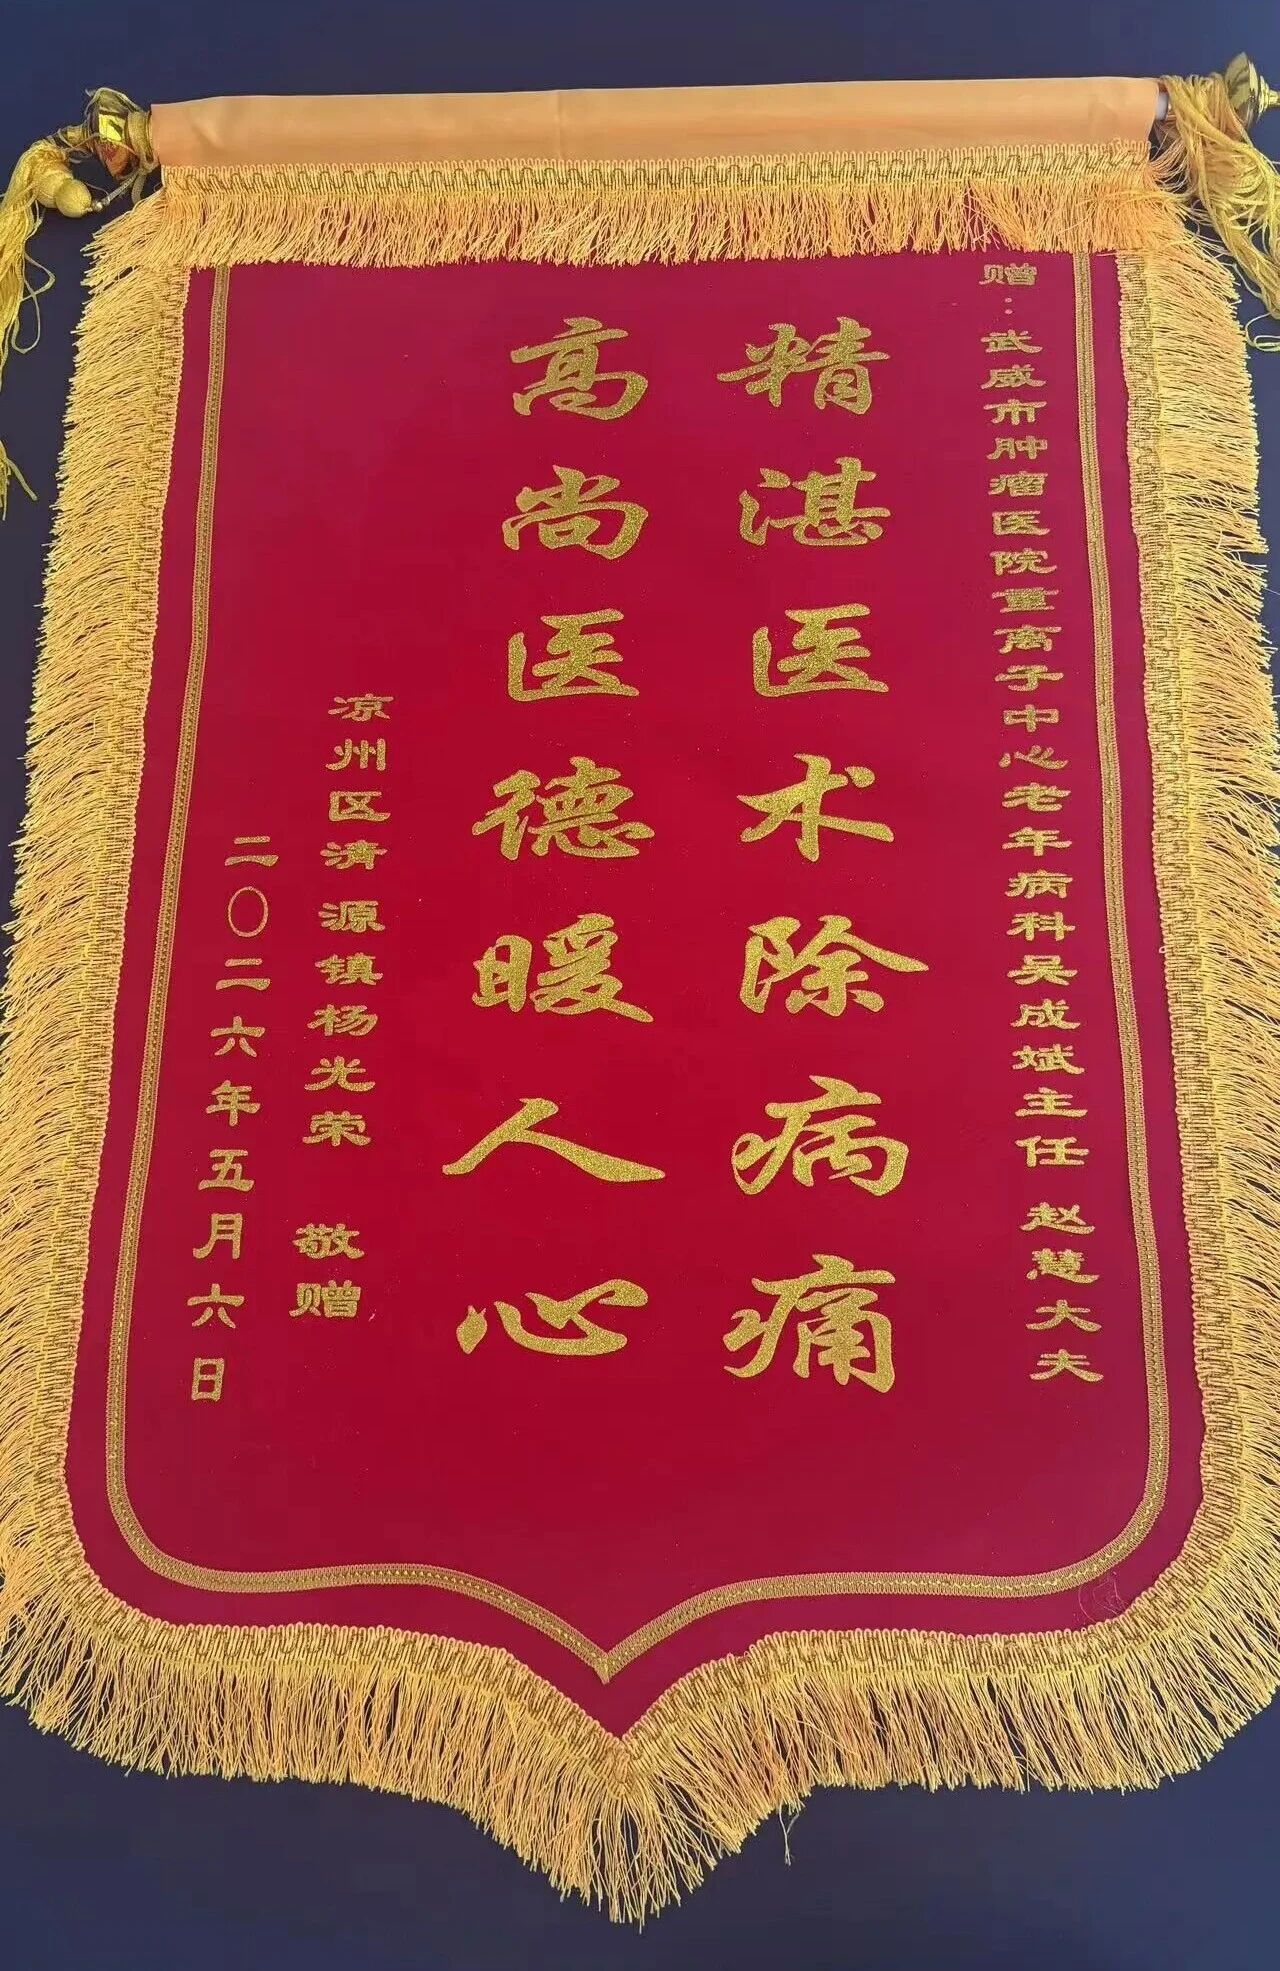 赠：武威市肿瘤医院重离子中心老年病科吴成斌主任 赵慧大夫
精湛医术除病痛
高尚医德暖人心
凉州区清源镇杨光荣 敬赠
二〇二六年五月六日